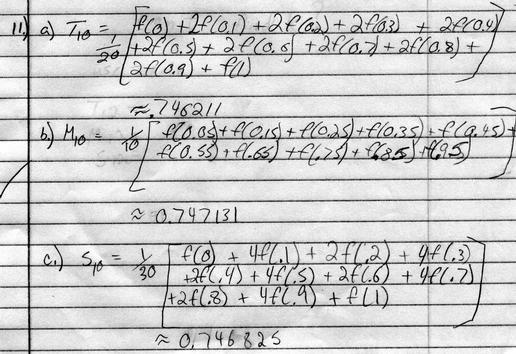 11.) a) T10 = 1/20 [f(0) + 2f(0.1) + 2f(0.2) + 2f(0.3) + 2f(0.4)
+2f(0.5) + 2f(0.6) + 2f(0.7) + 2f(0.8) +
2f(0.9) + f(1)]
≈ .746211
b.) M10 = 1/10 [f(0.05) + f(0.15) + f(0.25) + f(0.35) + f(0.45) +
f(0.55) + f(.65) + f(.75) + f(.85) + f(.95)]
≈ 0.747131
c.) S10 = 1/30 [f(0) + 4f(.1) + 2f(.2) + 4f(.3)
+2f(.4) + 4f(.5) + 2f(.6) + 4f(.7)
+2f(.8) + 4f(.9) + f(1)]
≈ 0.746825